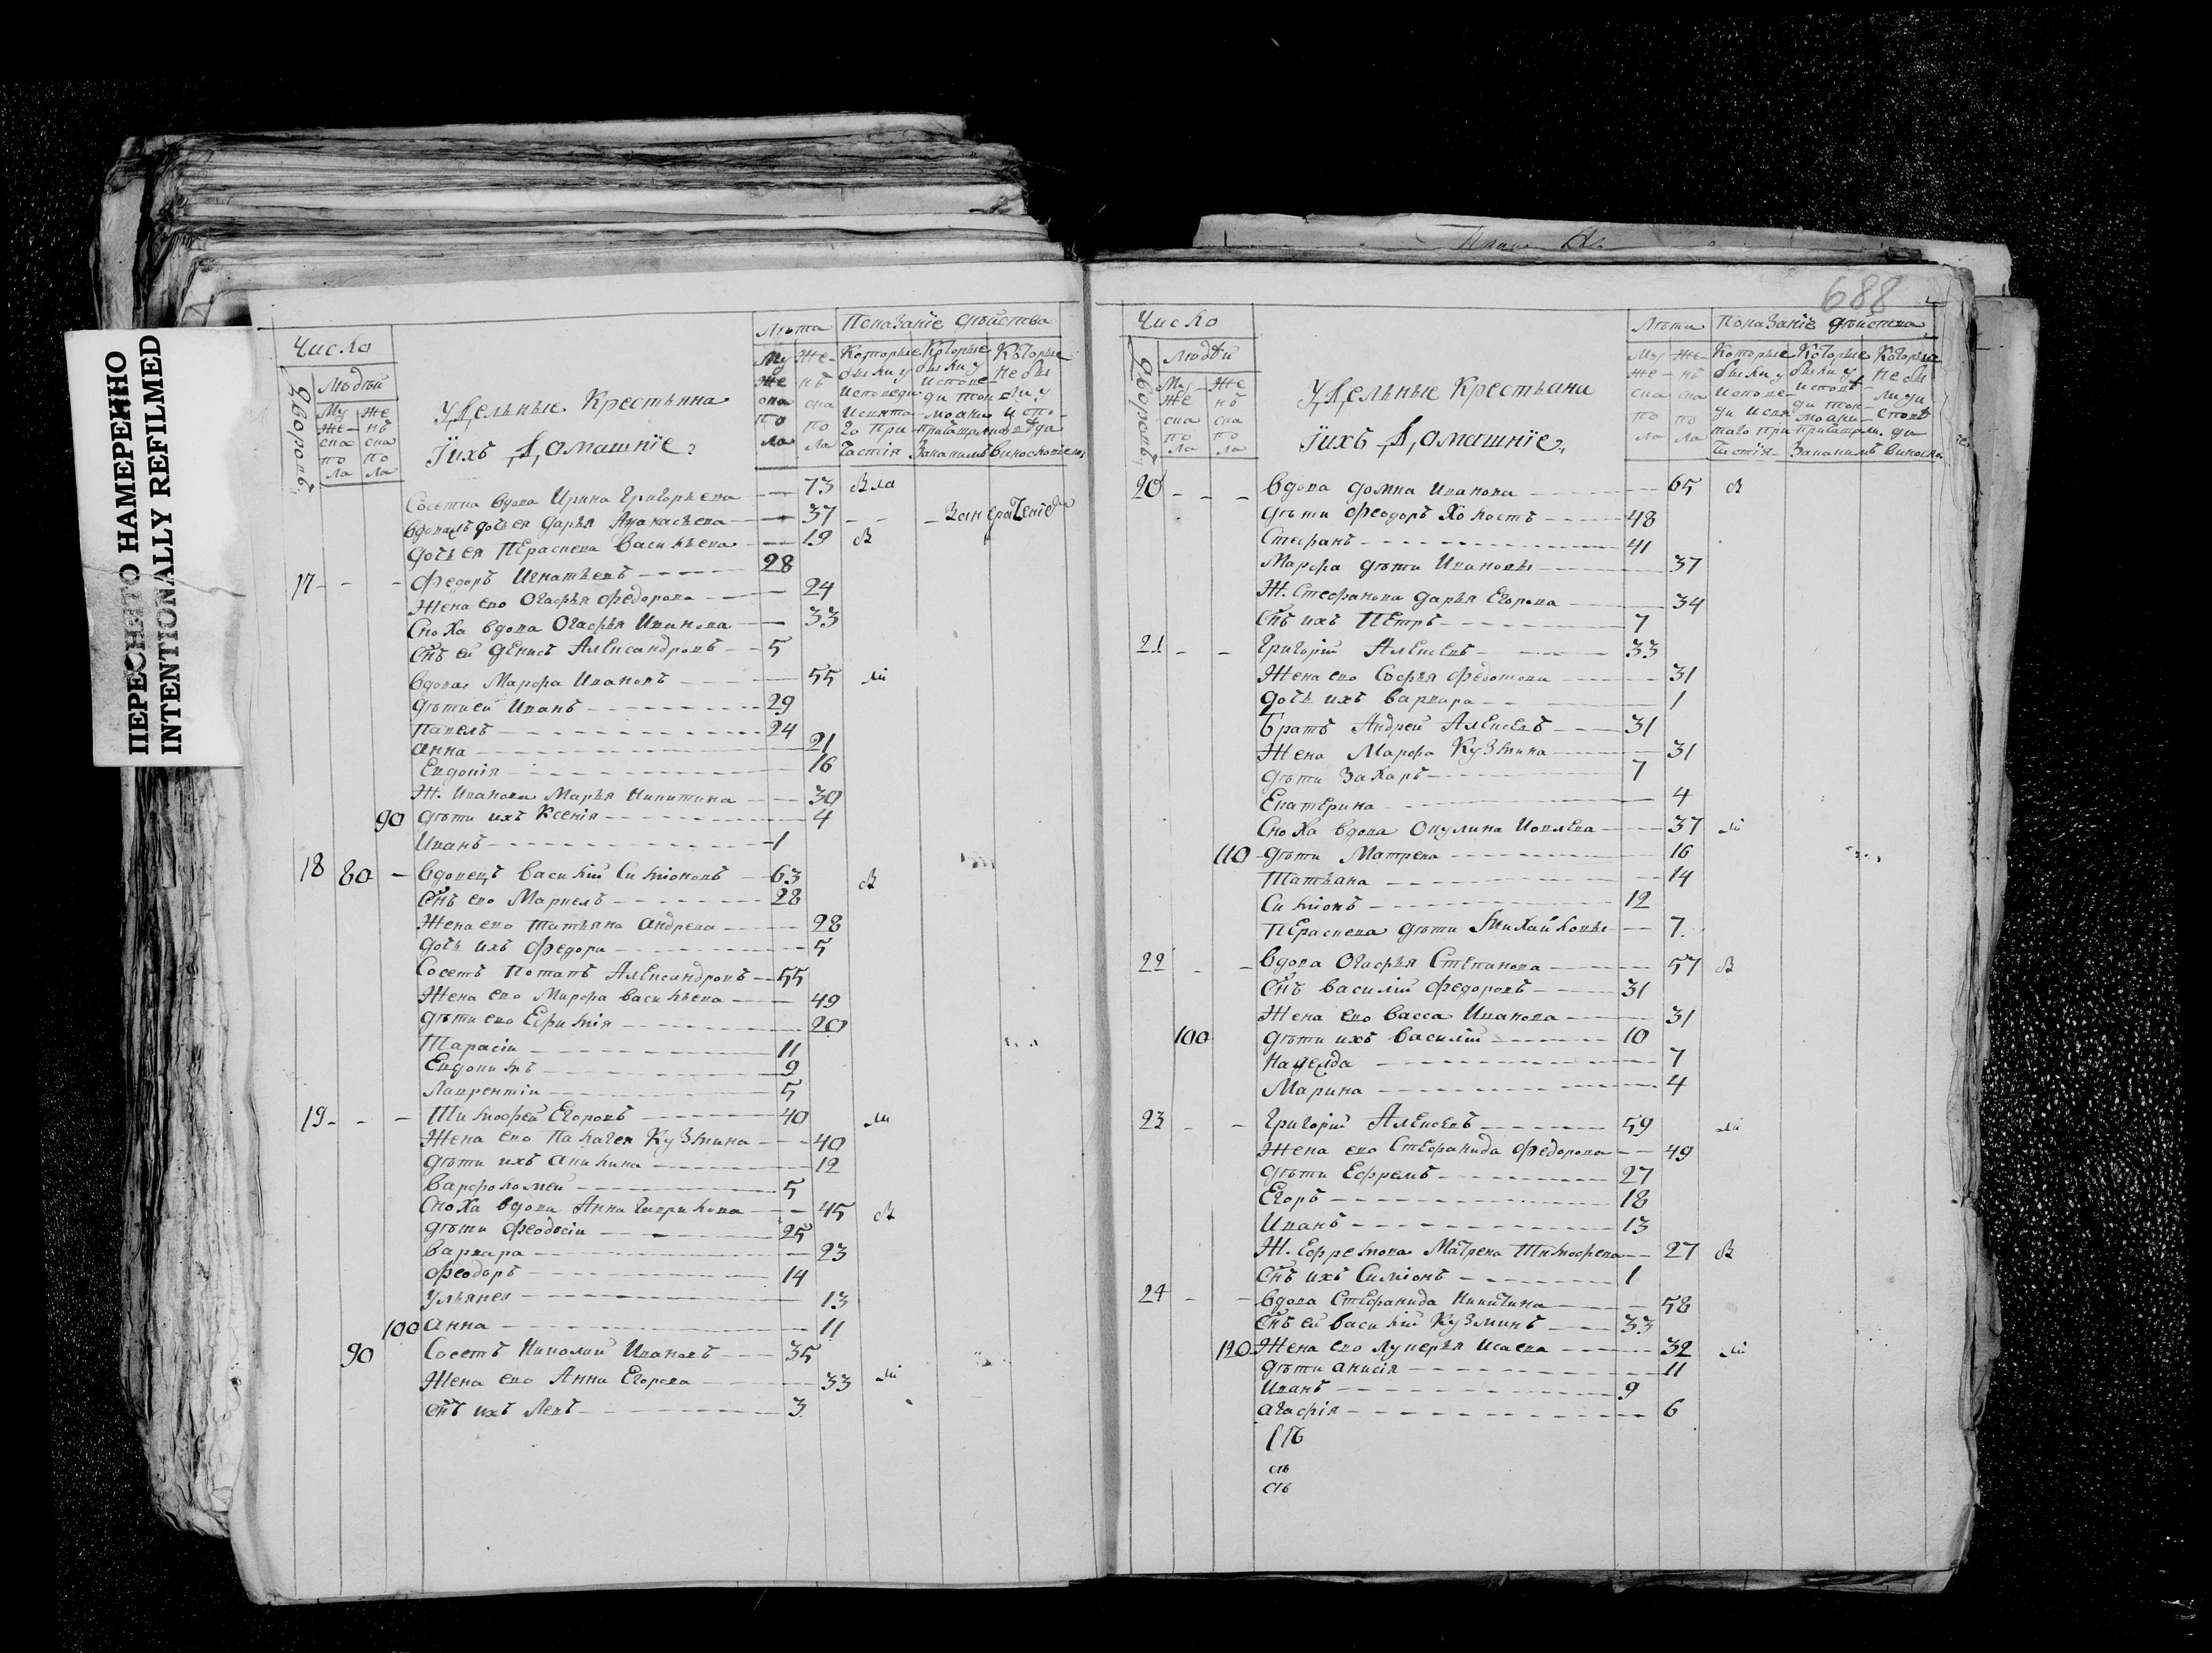 ПЕРЕСНЯТО НАМЕРЕННО
INTENTIONALLY REFILMED
Число
Лѣта Показанїе дѣйства
Дворовъ
Людѣй
Му же ска по ла
Же нъ ска по ла
Удельные Крестьяна
Їихъ Домашнїе
Му же ска по ла
Же нъ ска по ла
Которые были у исповеди и свята го при частія
Которые были у испове ди токмо а не прич за какимъ винословіемъ
Которые не бы ли у испо веди
Сосетка вдова Ирина Григорьева 73
Вдова дочь ея Дарья Афанасьева 37
дочь ея Пераскева Васильева 19
17 Федоръ Игнатьевъ 28
Жена ево Огафья Федорова 24
Сноха вдова Огафья Иванова 33
Снъ ей Денисъ Александровъ 5
вдова Марфа Иванова 55
дѣти ей Иванъ 29
Павелъ 24
Анна 21
Евдокія 16
Ж. Иванова Марья Никитина 30
90 дѣти ихъ Ксенія 4
Иванъ 1
18 80 вдовецъ Василій Симіоновъ 63
Снъ ево Маркелъ 28
Жена ево Татьяна Андрева 28
дочь ихъ Федора 5
Сосетъ Потапъ Александровъ 55
Жена ево Марфа Васильева 49
дѣти ево Ефимія 20
Тарасіи 11
Евдокимъ 9
Лаврентіи 5
19 Тимофей Егоровъ 40
Жена ево Палагея Кузмина 40
дѣти ихъ Акилина 12
Варфоломей 5
Сноха вдова Анна Гаврилова 45
дѣти Феодосіи 25
Варвара 23
Феодоръ 14
Ульянея 13
100 Анна 11
90 Сосетъ Николай Ивановъ 35
Жена ево Анна Егорова 33
Снъ ихъ Левъ 3
688
Число
Лѣта Показанїе дѣйства
Дворовъ
Людѣй
Му же ска по ла
Же нъ ска по ла
Удельные Крестьяни
Їихъ Домашнїе
Му же ска по ла
Же нъ ска по ла
Которые были у испове ди и свя таго при частїя
Которые были у исповѣ ди ток мо а не причащали за какимъ
Которые не бы ли у и сповѣ ди
20 вдова Домна Иванова 65
дѣти Феодоръ холостъ 48
Стефанъ 41
Марфа дѣти Ивановы 37
Ж. Стефанова Дарья Егорова 34
Снъ ихъ Петръ 7
21 Григорій Алексевъ 33
Жена ево Софья Федотова 31
дочь ихъ Варвара 1
Братъ Андрей Алексевъ 31
Жена Марфа Кузмина 31
дѣти Захаръ 7
Екатерина 4
Сноха вдова Окулина Иовлева 37
110 дѣти Матрена 16
Татьяна 14
Симіонъ 12
Пераскева дѣти Михайловы 7
22 вдова Огафья Степанова 57
Снъ Василій Федоровъ 31
Жена ево Васса Иванова 31
100 дѣти ихъ Василій 10
Надежда 7
Марина 4
23 Григорій Алексевъ 59
Жена ево Стефанида Федорова 49
дѣти Ефремъ 27
Егоръ 18
Иванъ 13
Ж. Ефремова Матрена Тимофева 27
Снъ ихъ Симіонъ 1
24 вдова Стефанида Никитина 58
Снъ ей Василій Кузминъ 33
120 Жена ево Лукерья Исаева 32
дѣти Анисія 11
Иванъ 9
Агафія 6